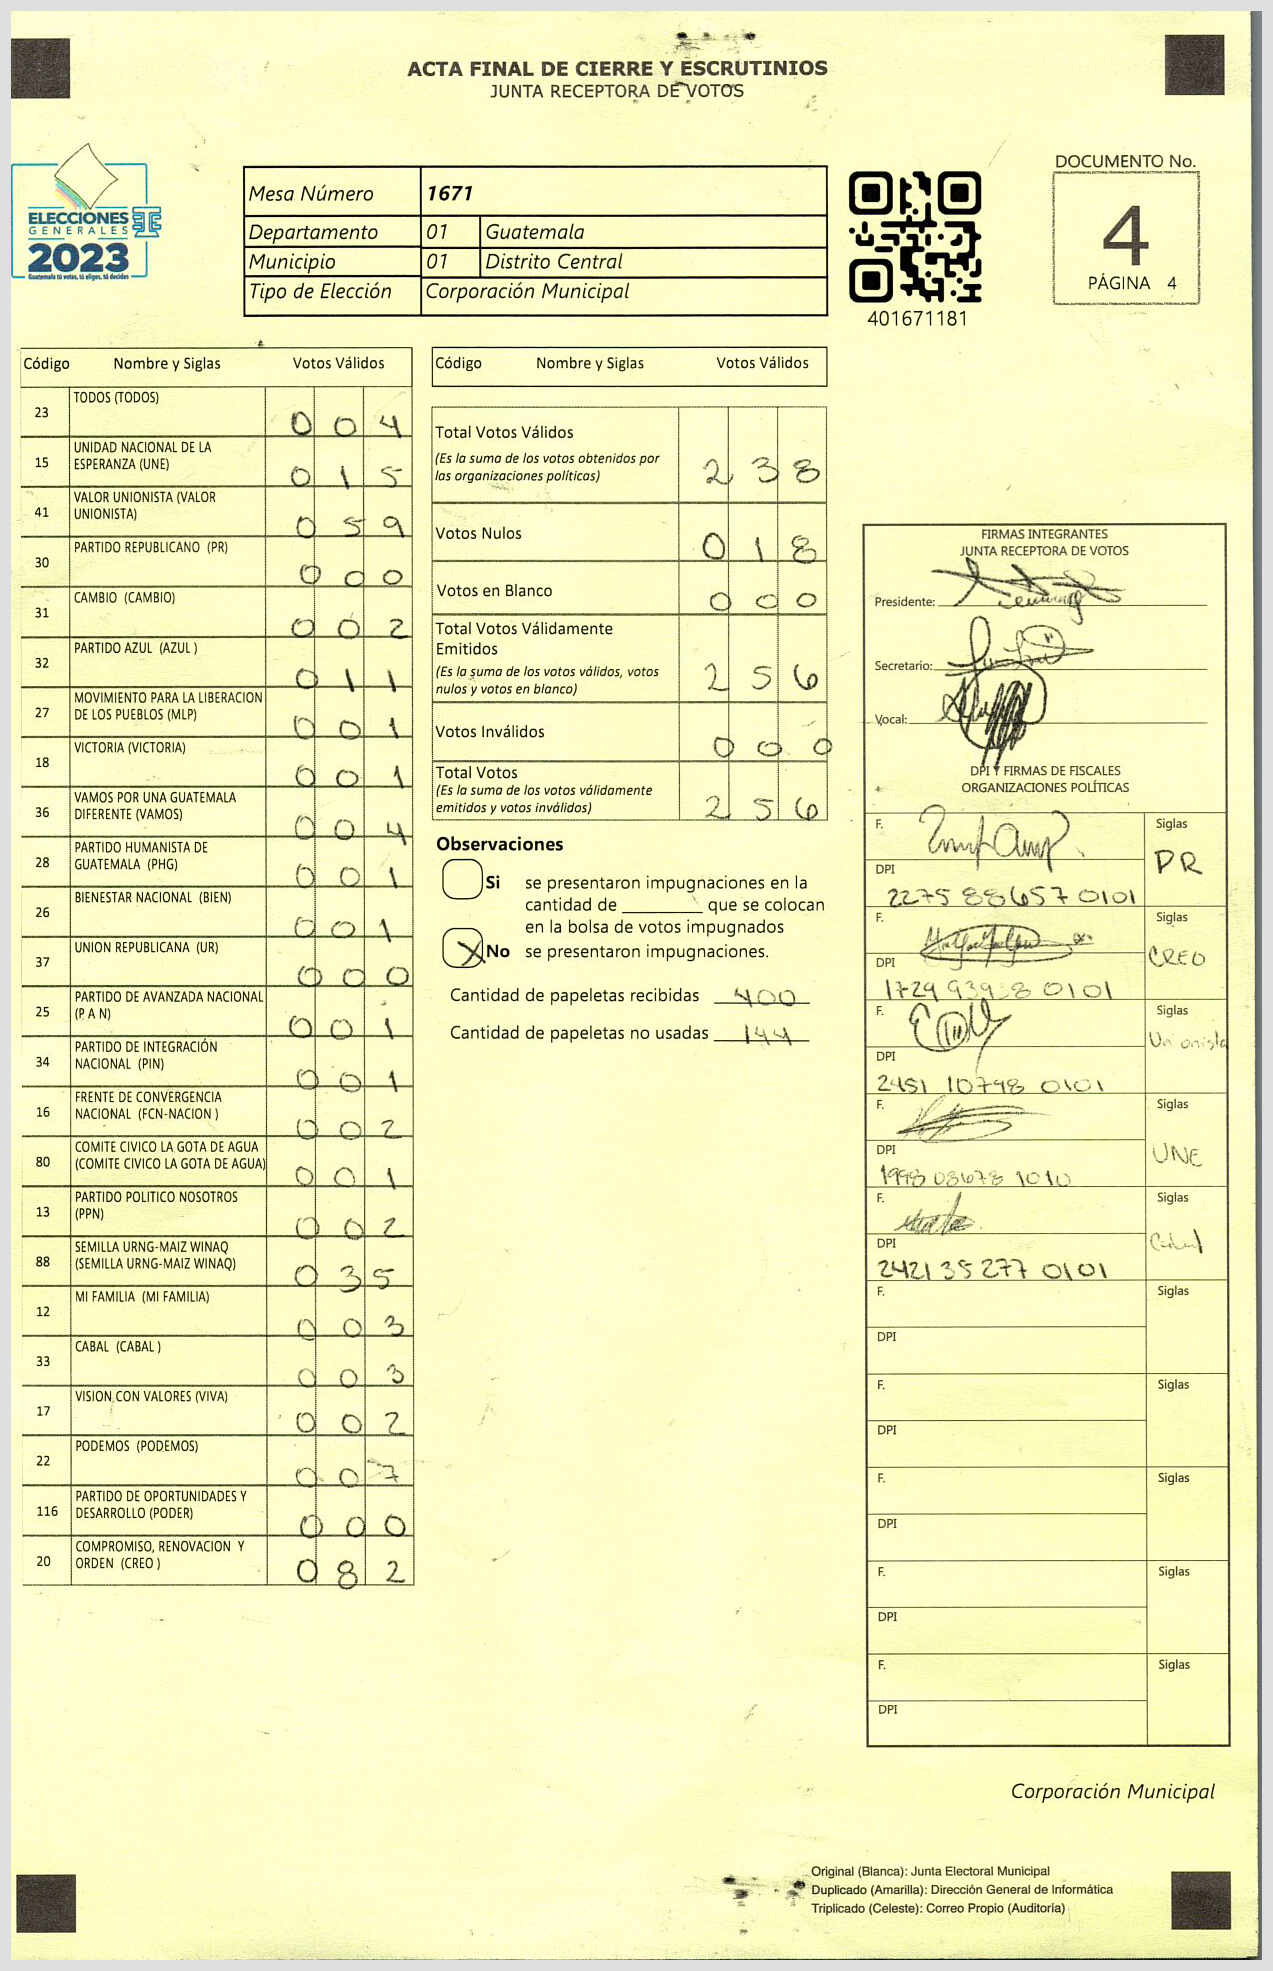 ACTA FINAL DE CIERRE Y ESCRUTINIOS
JUNTA RECEPTORA DE VOTOS
ELECCIONES
GENERALES
2023
Guatemala tú votas, tú eliges, tú decides
Mesa Número 1671
Departamento 01 Guatemala
Municipio 01 Distrito Central
Tipo de Elección Corporación Municipal
401671181
DOCUMENTO No.
4
PÁGINA 4
Código Nombre y Siglas Votos Válidos
23 TODOS (TODOS) 0 0 4
15 UNIDAD NACIONAL DE LA
ESPERANZA (UNE) 0 1 5
41 VALOR UNIONISTA (VALOR
UNIONISTA) 0 5 9
30 PARTIDO REPUBLICANO (PR) 0 0 0
31 CAMBIO (CAMBIO) 0 0 2
32 PARTIDO AZUL (AZUL ) 0 1 1
27 MOVIMIENTO PARA LA LIBERACION
DE LOS PUEBLOS (MLP) 0 0 1
18 VICTORIA (VICTORIA) 0 0 1
36 VAMOS POR UNA GUATEMALA
DIFERENTE (VAMOS) 0 0 4
28 PARTIDO HUMANISTA DE
GUATEMALA (PHG) 0 0 1
26 BIENESTAR NACIONAL (BIEN) 0 0 1
37 UNION REPUBLICANA (UR) 0 0 0
25 PARTIDO DE AVANZADA NACIONAL
(P A N) 0 0 1
34 PARTIDO DE INTEGRACIÓN
NACIONAL (PIN) 0 0 1
16 FRENTE DE CONVERGENCIA
NACIONAL (FCN-NACION ) 0 0 2
80 COMITE CIVICO LA GOTA DE AGUA
(COMITE CIVICO LA GOTA DE AGUA) 0 0 1
13 PARTIDO POLITICO NOSOTROS
(PPN) 0 0 2
88 SEMILLA URNG-MAIZ WINAQ
(SEMILLA URNG-MAIZ WINAQ) 0 3 5
12 MI FAMILIA (MI FAMILIA) 0 0 3
33 CABAL (CABAL ) 0 0 3
17 VISION CON VALORES (VIVA) 0 0 2
22 PODEMOS (PODEMOS) 0 0 7
116 PARTIDO DE OPORTUNIDADES Y
DESARROLLO (PODER) 0 0 0
20 COMPROMISO, RENOVACION Y
ORDEN (CREO ) 0 8 2
Código Nombre y Siglas Votos Válidos
Total Votos Válidos
(Es la suma de los votos obtenidos por
las organizaciones políticas) 2 3 8
Votos Nulos 0 1 8
Votos en Blanco 0 0 0
Total Votos Válidamente
Emitidos
(Es la suma de los votos válidos, votos
nulos y votos en blanco) 2 5 6
Votos Inválidos 0 0 0
Total Votos
(Es la suma de los votos válidamente
emitidos y votos inválidos) 2 5 6
Observaciones
Si se presentaron impugnaciones en la
cantidad de ________ que se colocan
en la bolsa de votos impugnados
X No se presentaron impugnaciones.
Cantidad de papeletas recibidas 400
Cantidad de papeletas no usadas 144
FIRMAS INTEGRANTES
JUNTA RECEPTORA DE VOTOS
Presidente:
Secretario:
Vocal:
DPI Y FIRMAS DE FISCALES
ORGANIZACIONES POLÍTICAS
F. Siglas
PR
DPI
2275 88657 0101
F. Siglas
CREO
DPI
1729 93938 0101
F. Siglas
Unionista
DPI
2451 10798 0101
F. Siglas
UNE
DPI
1998 03678 1010
F. Siglas
DPI
2421 35 277 0101
F. Siglas
DPI
F. Siglas
DPI
F. Siglas
DPI
F. Siglas
DPI
F. Siglas
DPI
Corporación Municipal
Original (Blanca): Junta Electoral Municipal
Duplicado (Amarilla): Dirección General de Informática
Triplicado (Celeste): Correo Propio (Auditoría)